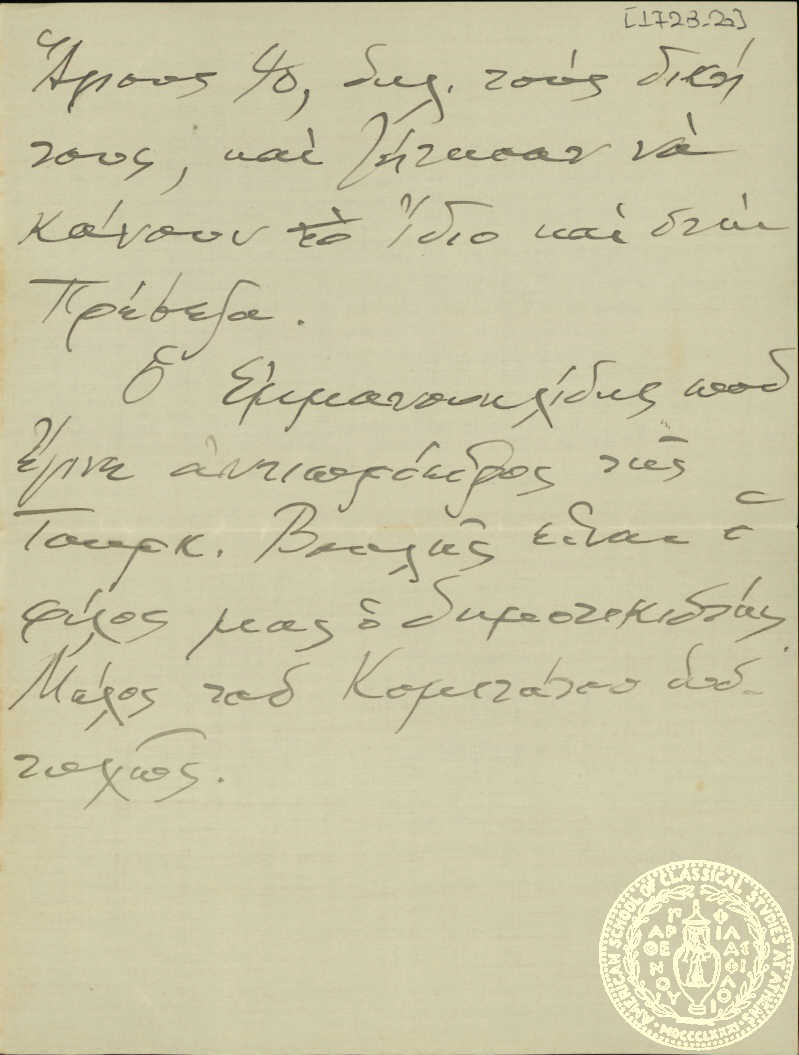 [1723-2a]
Ἄρπους 40, δηλ. τοὺς δική
τους, καὶ ζήτησαν νὰ
κάνουν τὸ ἴδιο καὶ στὴν
Πρέβεζα.
Ὁ Ἐμμανουηλίδης ποὺ
ἔγινε ἀντιπρόεδρος τῆς
Τουρκ. Βουλῆς εἶναι ὁ
φίλος μας ὁ δημοτικιστής
Μέλος τοῦ Κομιτάτου δυσ-
τυχῶς.
AMERICAN SCHOOL OF CLASSICAL STUDIES AT ATHENS
ΠΑΡΘΕΝΟΥ ΦΙΛΑΣ ΦΙΛΟΥ
MDCCCLXXXI